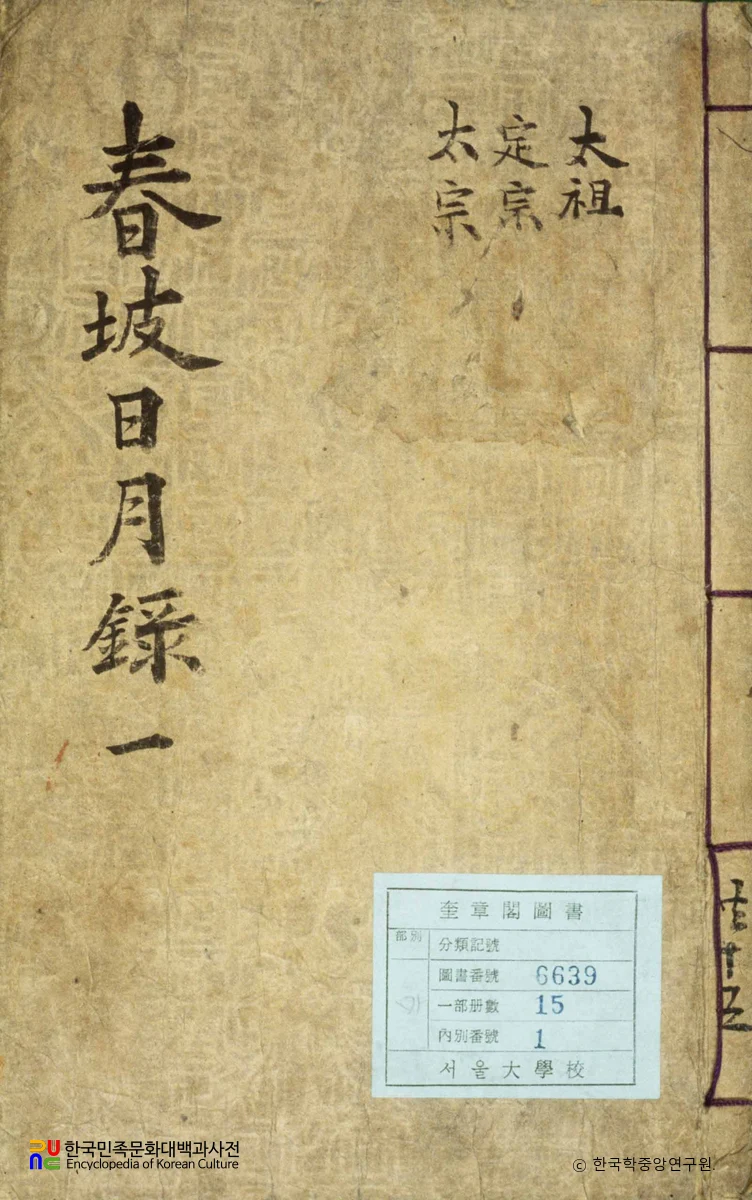 太祖
定宗
太宗
春坡日月錄 一
共十五
奎章閣圖書
部別
分類記號
圖書番號 6639
一部冊數 15
內別番號 1
서울大學校
한국민족문화대백과사전
Encyclopedia of Korean Culture
ⓒ 한국학중앙연구원.